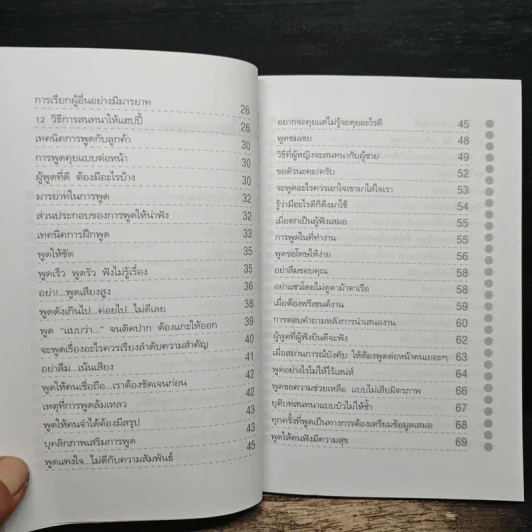 การเรียกผู้อื่นอย่างมีมารยาท 26
12 วิธีการสนทนาให้แฮปปี้ 26
เทคนิคการพูดกับลูกค้า 30
การพูดคุยแบบต่อหน้า 30
ผู้พูดที่ดี ต้องมีอะไรบ้าง 30
มารยาทในการพูด 32
ส่วนประกอบของการพูดให้น่าฟัง 32
เทคนิคการฝึกพูด 33
พูดให้ชัด 35
พูดเร็ว พูดรัว ฟังไม่รู้เรื่อง 35
อย่า!...พูดเสียงสูง 36
พูดดังเกินไป...ค่อยไป...ไม่ดีเลย 38
พูด "แบบว่า..." จนติดปาก ต้องแกะให้ออก 39
จะพูดเรื่องอะไรควรเรียงลำดับความสำคัญ 40
อย่าลืม...เน้นเสียง 41
พูดให้คนเชื่อถือ...เราต้องชัดเจนก่อน 42
เหตุที่การพูดล้มเหลว 42
พูดให้คนจำได้ต้องมีสรุป 43
บุคลิกภาพเสริมการพูด 43
พูดแทงใจ...ไม่ดีกับความสัมพันธ์ 45
อยากจะคุยแต่ไม่รู้จะคุยอะไรดี 45
พูดชมเชย 48
วิธีที่ผู้หญิงจะสนทนากับผู้ชาย 49
ขอตัวนะคะ/ครับ 52
จะพูดอะไรควรเอาใจเขามาใส่ใจเรา 53
รู้ว่ามีอะไรดีก็ดึงมาใช้ 54
เมื่อตกเป็นผู้ฟังเสมอ 55
การพูดในที่ทำงาน 55
พูดขอโทษให้ง่าย 56
อย่าลืมขอบคุณ 58
อย่าแซวโดยไม่ดูตาม้าตาเรือ 58
เมื่อต้องพรีเซนต์งาน 59
การตอบคำถามหลังการนำเสนองาน 60
ผู้พูดที่ผู้ฟังยินดีจะฟัง 62
เมื่อสถานการณ์บังคับ ให้ต้องพูดต่อหน้าคนเยอะๆ 63
พูดอย่างไรไม่ให้ไร้เสน่ห์ 64
พูดขอความช่วยเหลือ แบบไม่เสียมิตรภาพ 66
ยุติบทสนทนาแบบบัวไม่ให้ช้ำ 67
ทุกครั้งที่พูดเป็นทางการต้องเตรียมข้อมูลเสมอ 68
พูดให้คนฟังมีความสุข 69